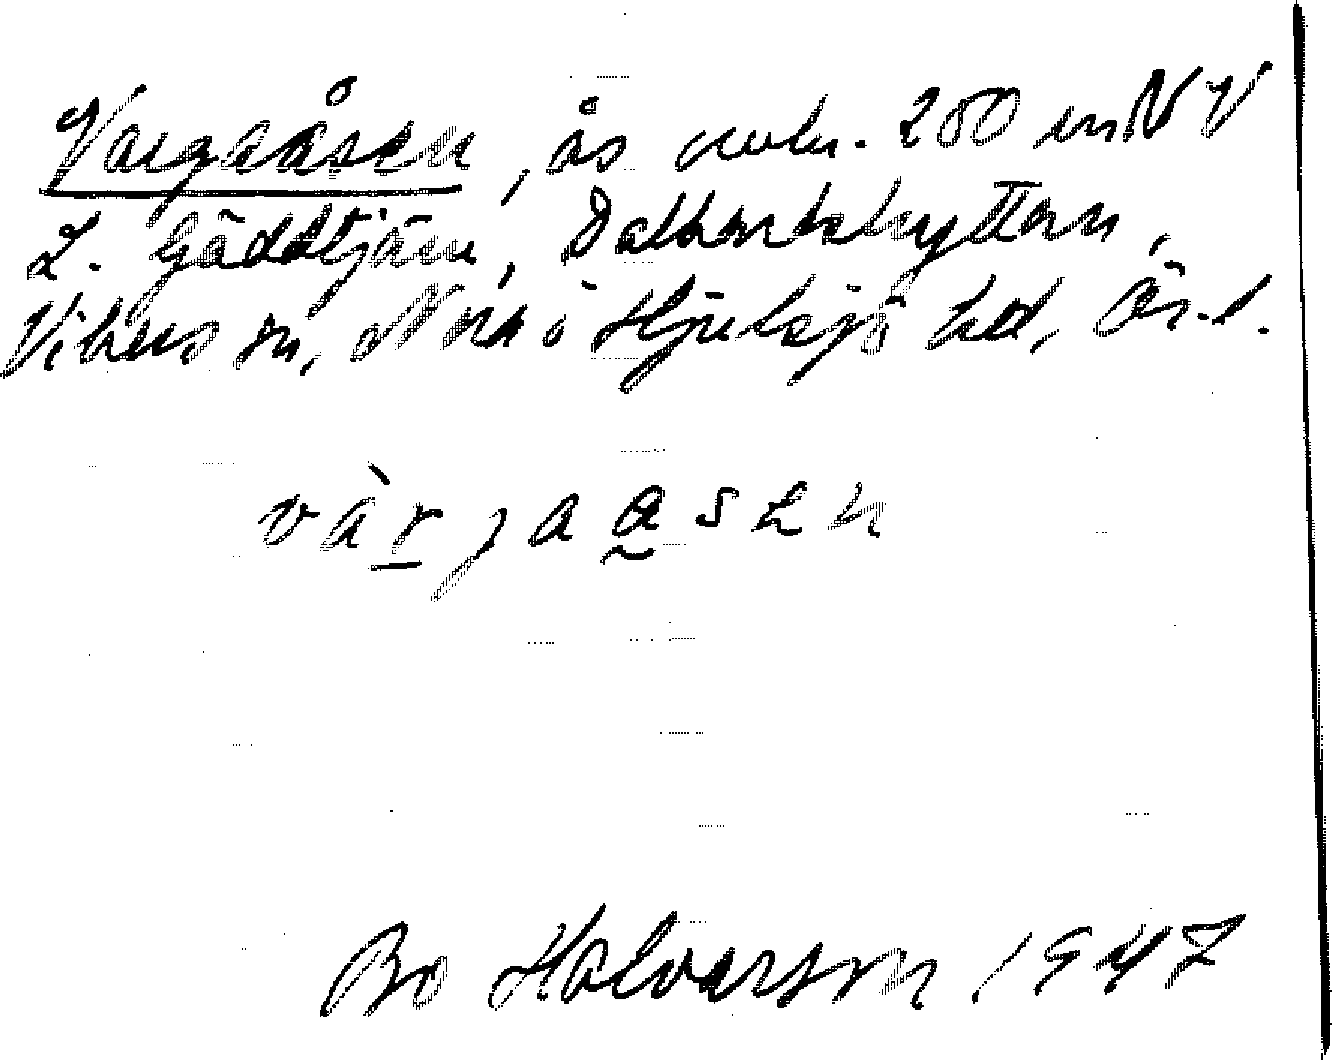 Vargaåsen, ås omkr. 200 m NV
L. Gäddtjärn, Dalkarlshyttan,
Vikers sn, Nora o Hjulsjö hd, Ör. l.
vàrgaasen
Bo Halvarson 1947